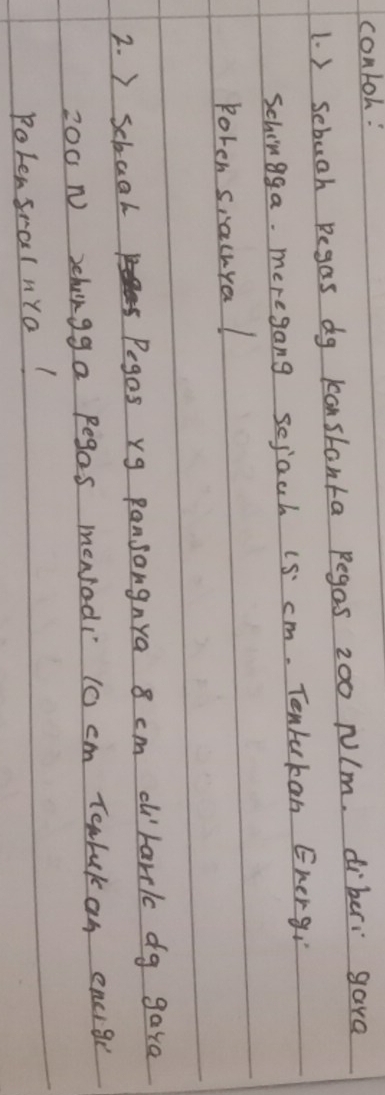 Contoh :
1.) Sebuah Pegas dg konstanta Pegas 200 N/m. diberi gaya
Sehingga. meregang sejauh 15 cm. Tentukan Energi
Potensialnya !
2.) Sebuah Pegas yg Panjangnya 8 cm ditarik dg gaya
200 N sehingga Pegas menjadi 10 cm Tentukan energi
Potensialnya !